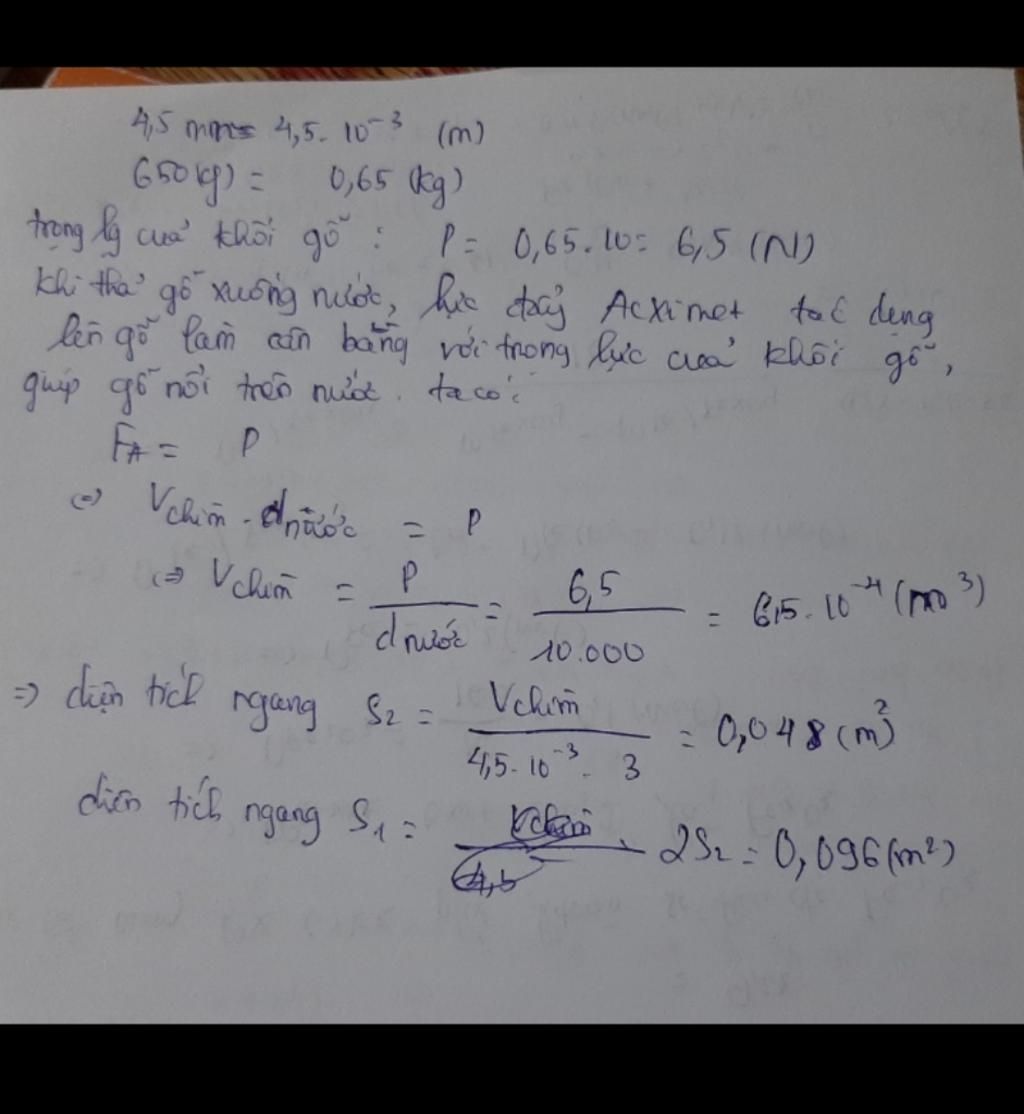 4,5 mm = 4,5. 10⁻³ (m)
650 (g) = 0,65 (kg)
trọng lg cuả khối gỗ : P = 0,65.10 = 6,5 (N)
khi thả gỗ xuống nước, lực đẩy Acximet tác dụng
lên gỗ làm cân bằng với trọng lực cuả khối gỗ,
giúp gỗ nổi trên nước. ta có :
F_A = P
(=) V chìm . d nước = P
(=) V chìm = P / d nước = 6,5 / 10.000 = 6,5. 10⁻⁴ (m³)
=) diện tích ngang S₂ = V chìm / 4,5. 10⁻³ . 3 = 0,048 (m²)
diện tích ngang S₁ = 2S₂ = 0,096 (m²)